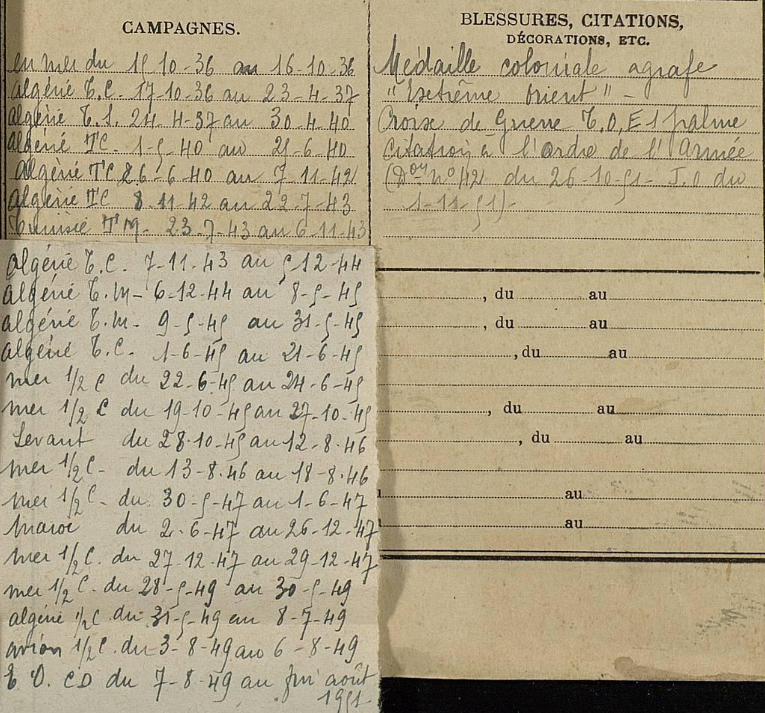 CAMPAGNES.
en mer du 15 10-36 au 16-10-36
algérie T.C. 17-10-36 au 23-4-37
algérie T.S. 24 4-37 au 30-4-40
algérie TC. 1-5-40 au 25-6-40
algérie TC 26-6-40 au 7-11-42
algérie TC 8-11-42 au 22-7-43
Tunisie TM- 23-7-43 au 6-11-43
algérie T.C. 7-11-43 au 5-12-44
algérie T.M- 6-12-44 au 8-5-45
algérie T.M- 9-5-45 au 31-5-45
algérie T.C. 1-6-45 au 21-6-45
mer 1/2 C du 22-6-45 au 24-6-45
mer 1/2 C du 19-10-45 au 27-10-45
Levant du 28-10-45 au 12-8-46
mer 1/2C- du 13-8-46 au 18-8-46
mer 1/2C- du 30-5-47 au 1-6-47
Maroc du 2-6-47 au 26-12-47
mer 1/2C. du 27-12-47 au 29-12-47
mer 1/2C. du 28-5-49 au 30-5-49
algérie 1/2C du 31-5-49 au 8-7-49
avion 1/2C. du 3-8-49 au 6-8-49
E O. CD du 7-8-49 au fin août
1951-
BLESSURES, CITATIONS,
DÉCORATIONS, ETC.
Médaille coloniale agrafe
"Extrême Orient" -
Croix de Guerre T.O.E 1 palme
Citation à l'Ordre de l'Armée
(Don n° 42 du 26-10-51- J.O du
1-11-51)-
, du au
, du au
, du au
, du au
, du au
au
au